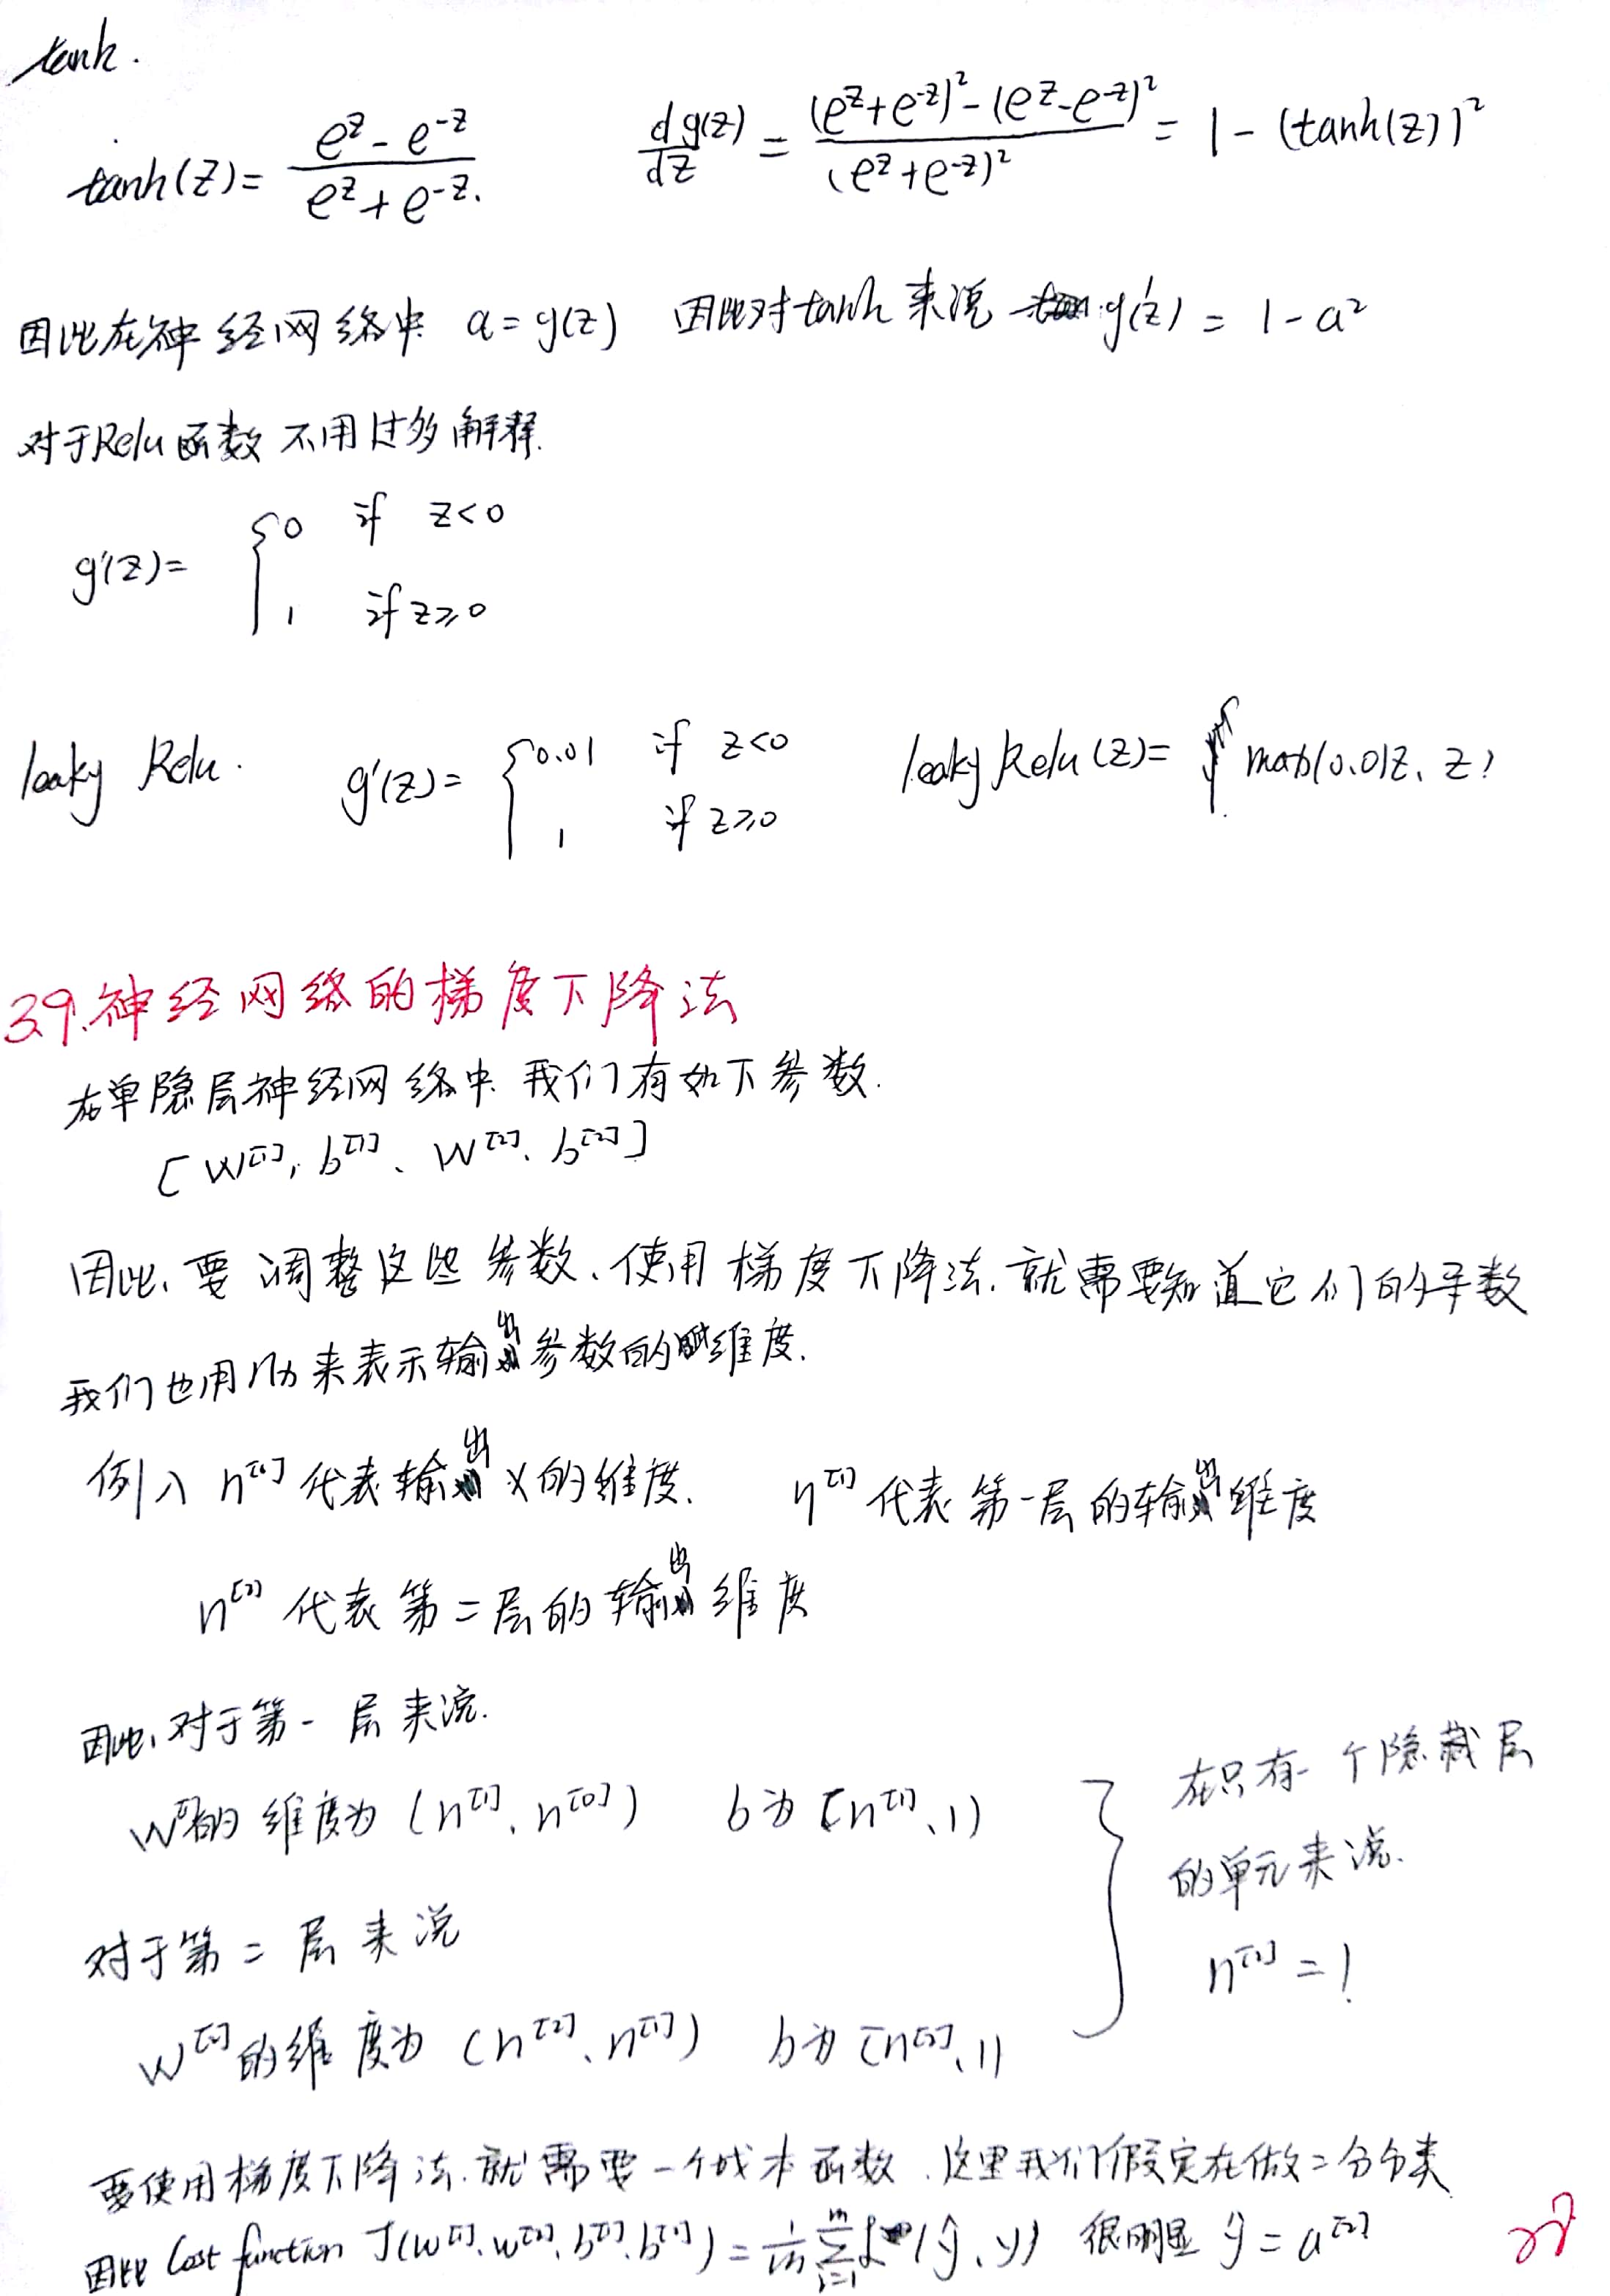 tanh.
tanh(z) = (e^z - e^-z) / (e^z + e^-z) dg(z)/dz = ((e^z + e^-z)² - (e^z - e^-z)²) / (e^z + e^-z)² = 1 - (tanh(z))²
因此在神经网络中 a = g(z) 因此对tanh来说 g'(z) = 1 - a²
对于Relu函数 不用过多解释.
g'(z) = { 0 if z<0
1 if z≥0
leaky Relu. g'(z) = { 0.01 if z<0 leaky Relu(z) = max(0.01z, z)
1 if z≥0
3.9. 神经网络的梯度下降法
在单隐层神经网络中 我们有如下参数.
[W^[1], b^[1]、W^[2]、b^[2]]
因此、要调整这些参数、使用梯度下降法. 就需要知道它们的导数
我们也用 来表示输出参数的维度.
例入 n^[0] 代表输出 x的维度. n^[1] 代表第一层的输出维度
n^[2] 代表第二层的输出维度
因此, 对于第一层来说.
W^[1]的维度为 (n^[1]、n^[0]) b为 [n^[1]、1)
在只有一个隐藏层
的单元来说.
n^[2] = 1
对于第二层来说
W^[2]的维度为 (n^[2]、n^[1]) b为 [n^[2]、1)
要使用梯度下降法. 就需要一个成本函数. 这里我们假定在做二分分类
因此 Cost function J(W^[1]、W^[2]、b^[1]、b^[2]) = 1/m Σ_{i=1}^m L(ŷ、y) 很明显 ŷ = a^[2]